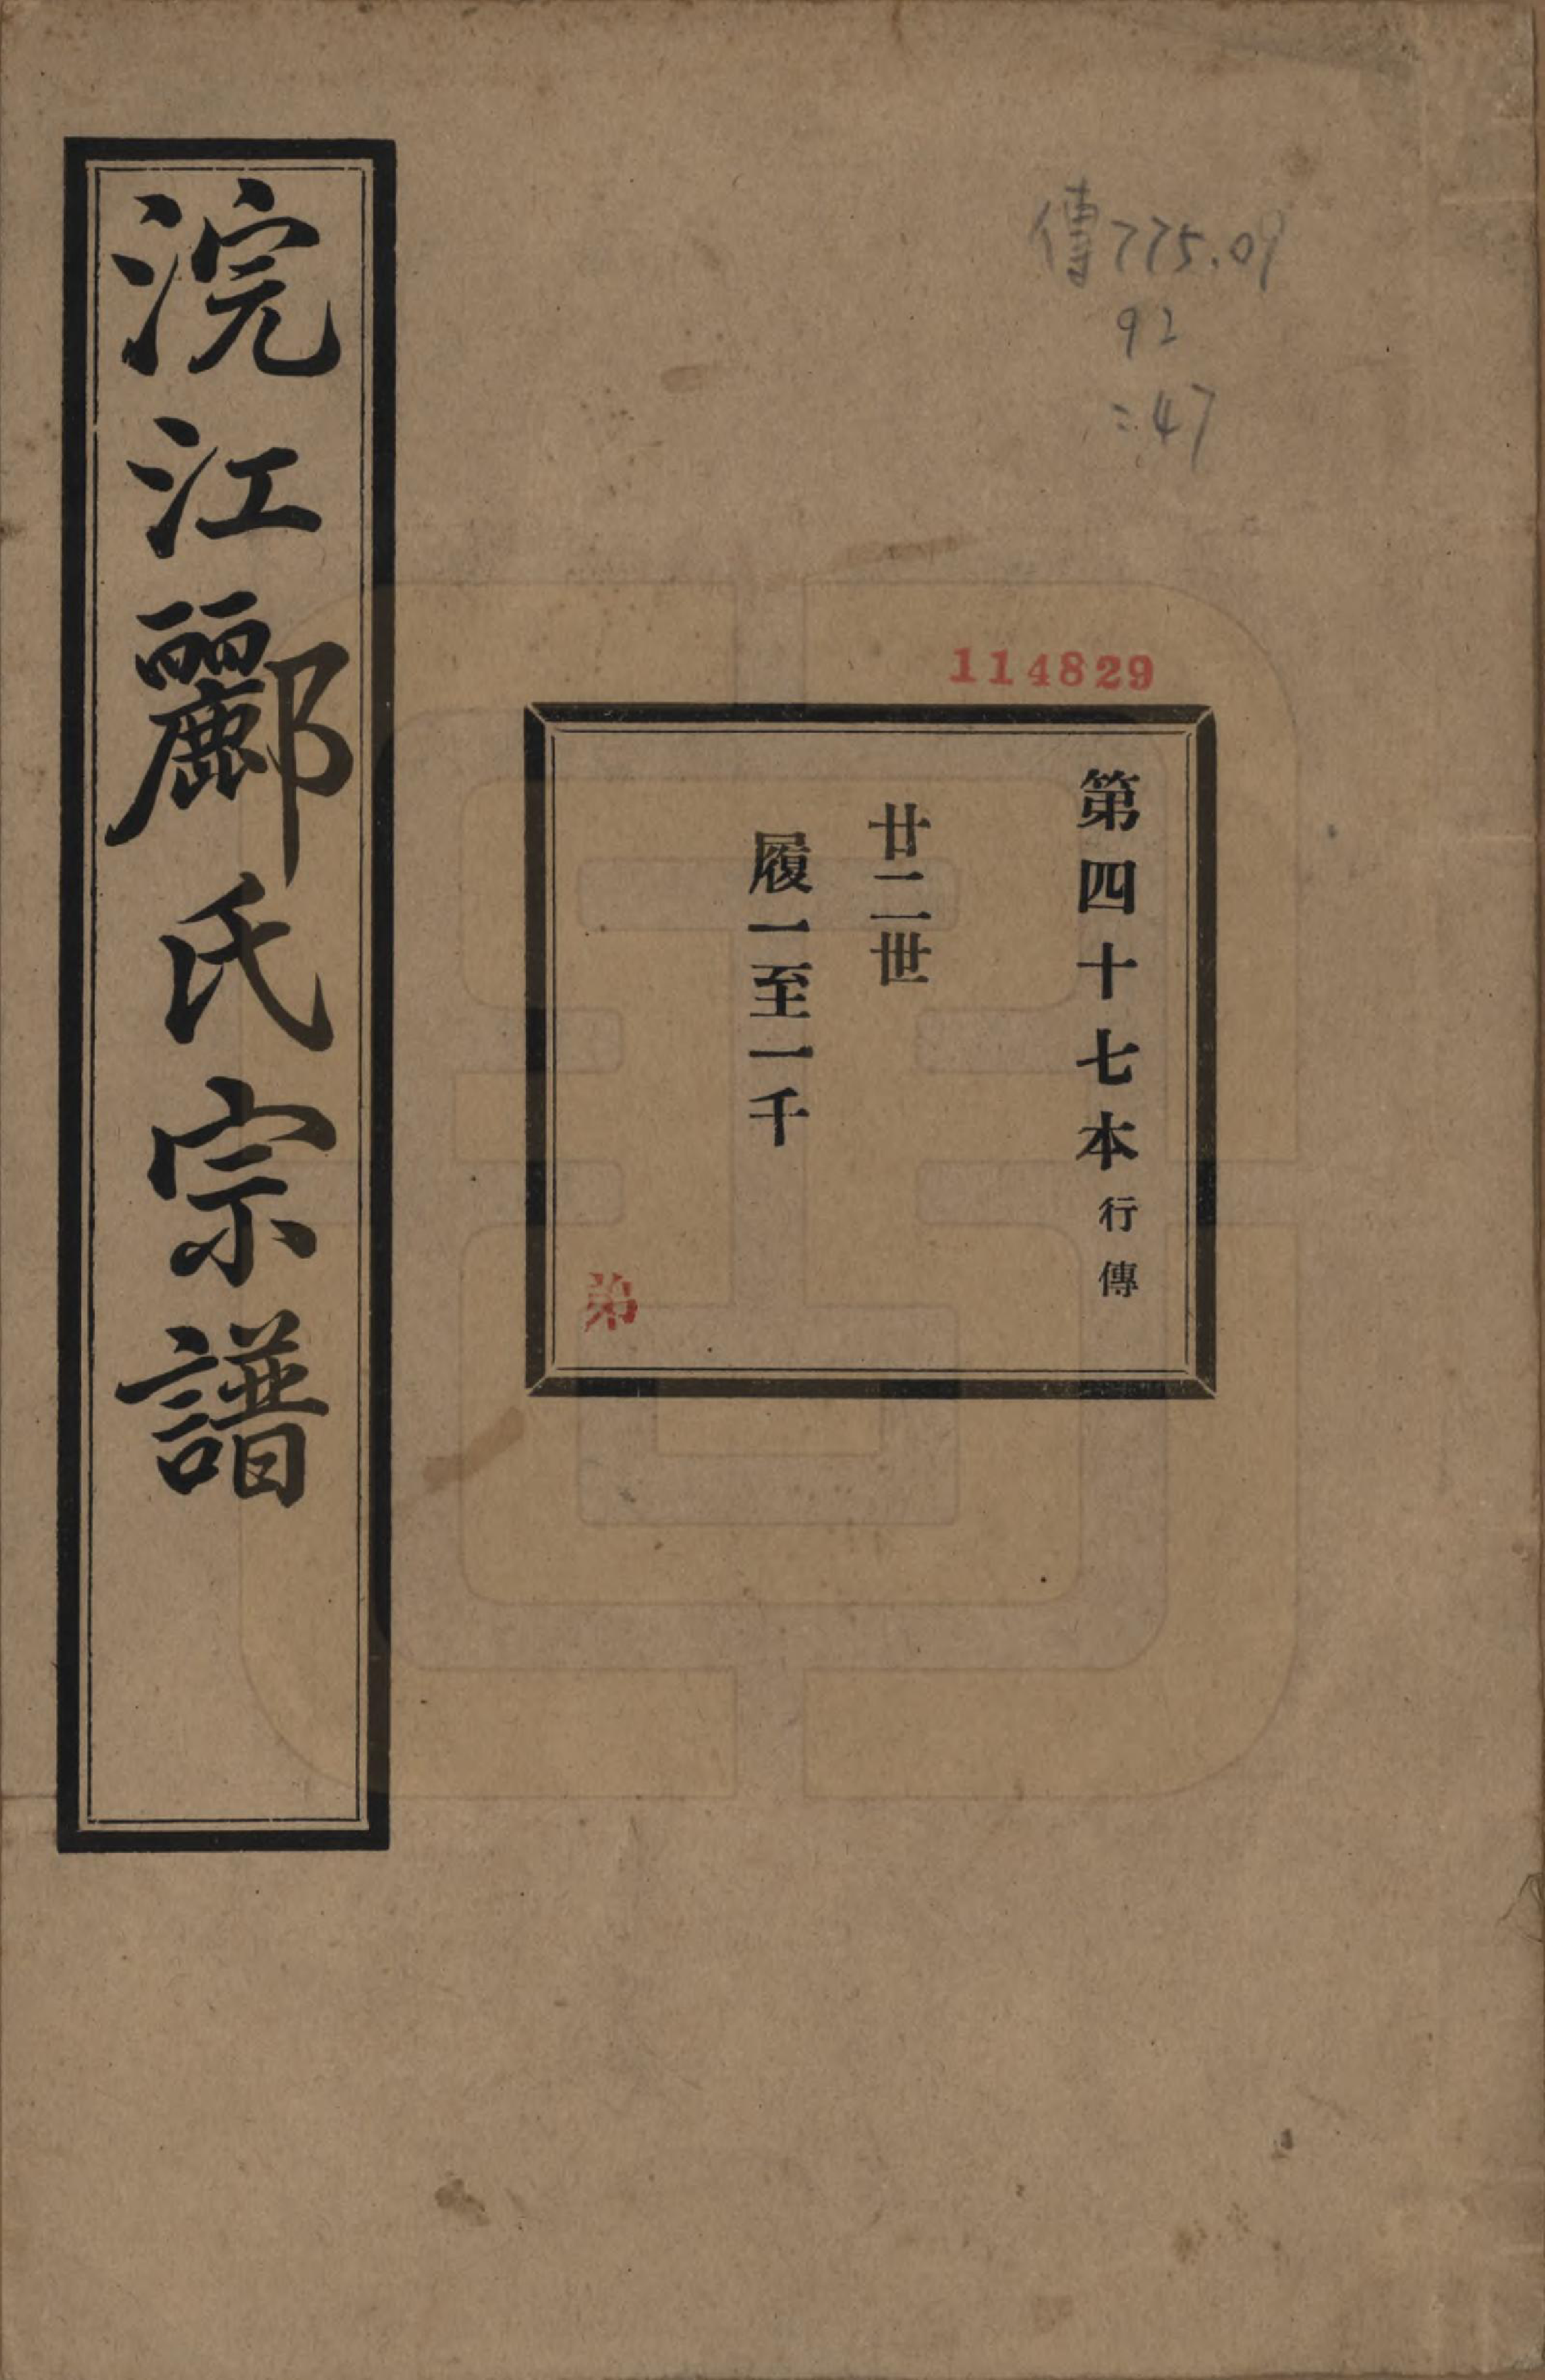 傳775.09
92
:47
114829
第四十七本 行傳
廿二世
履一至一千
弟
浣江酈氏宗譜